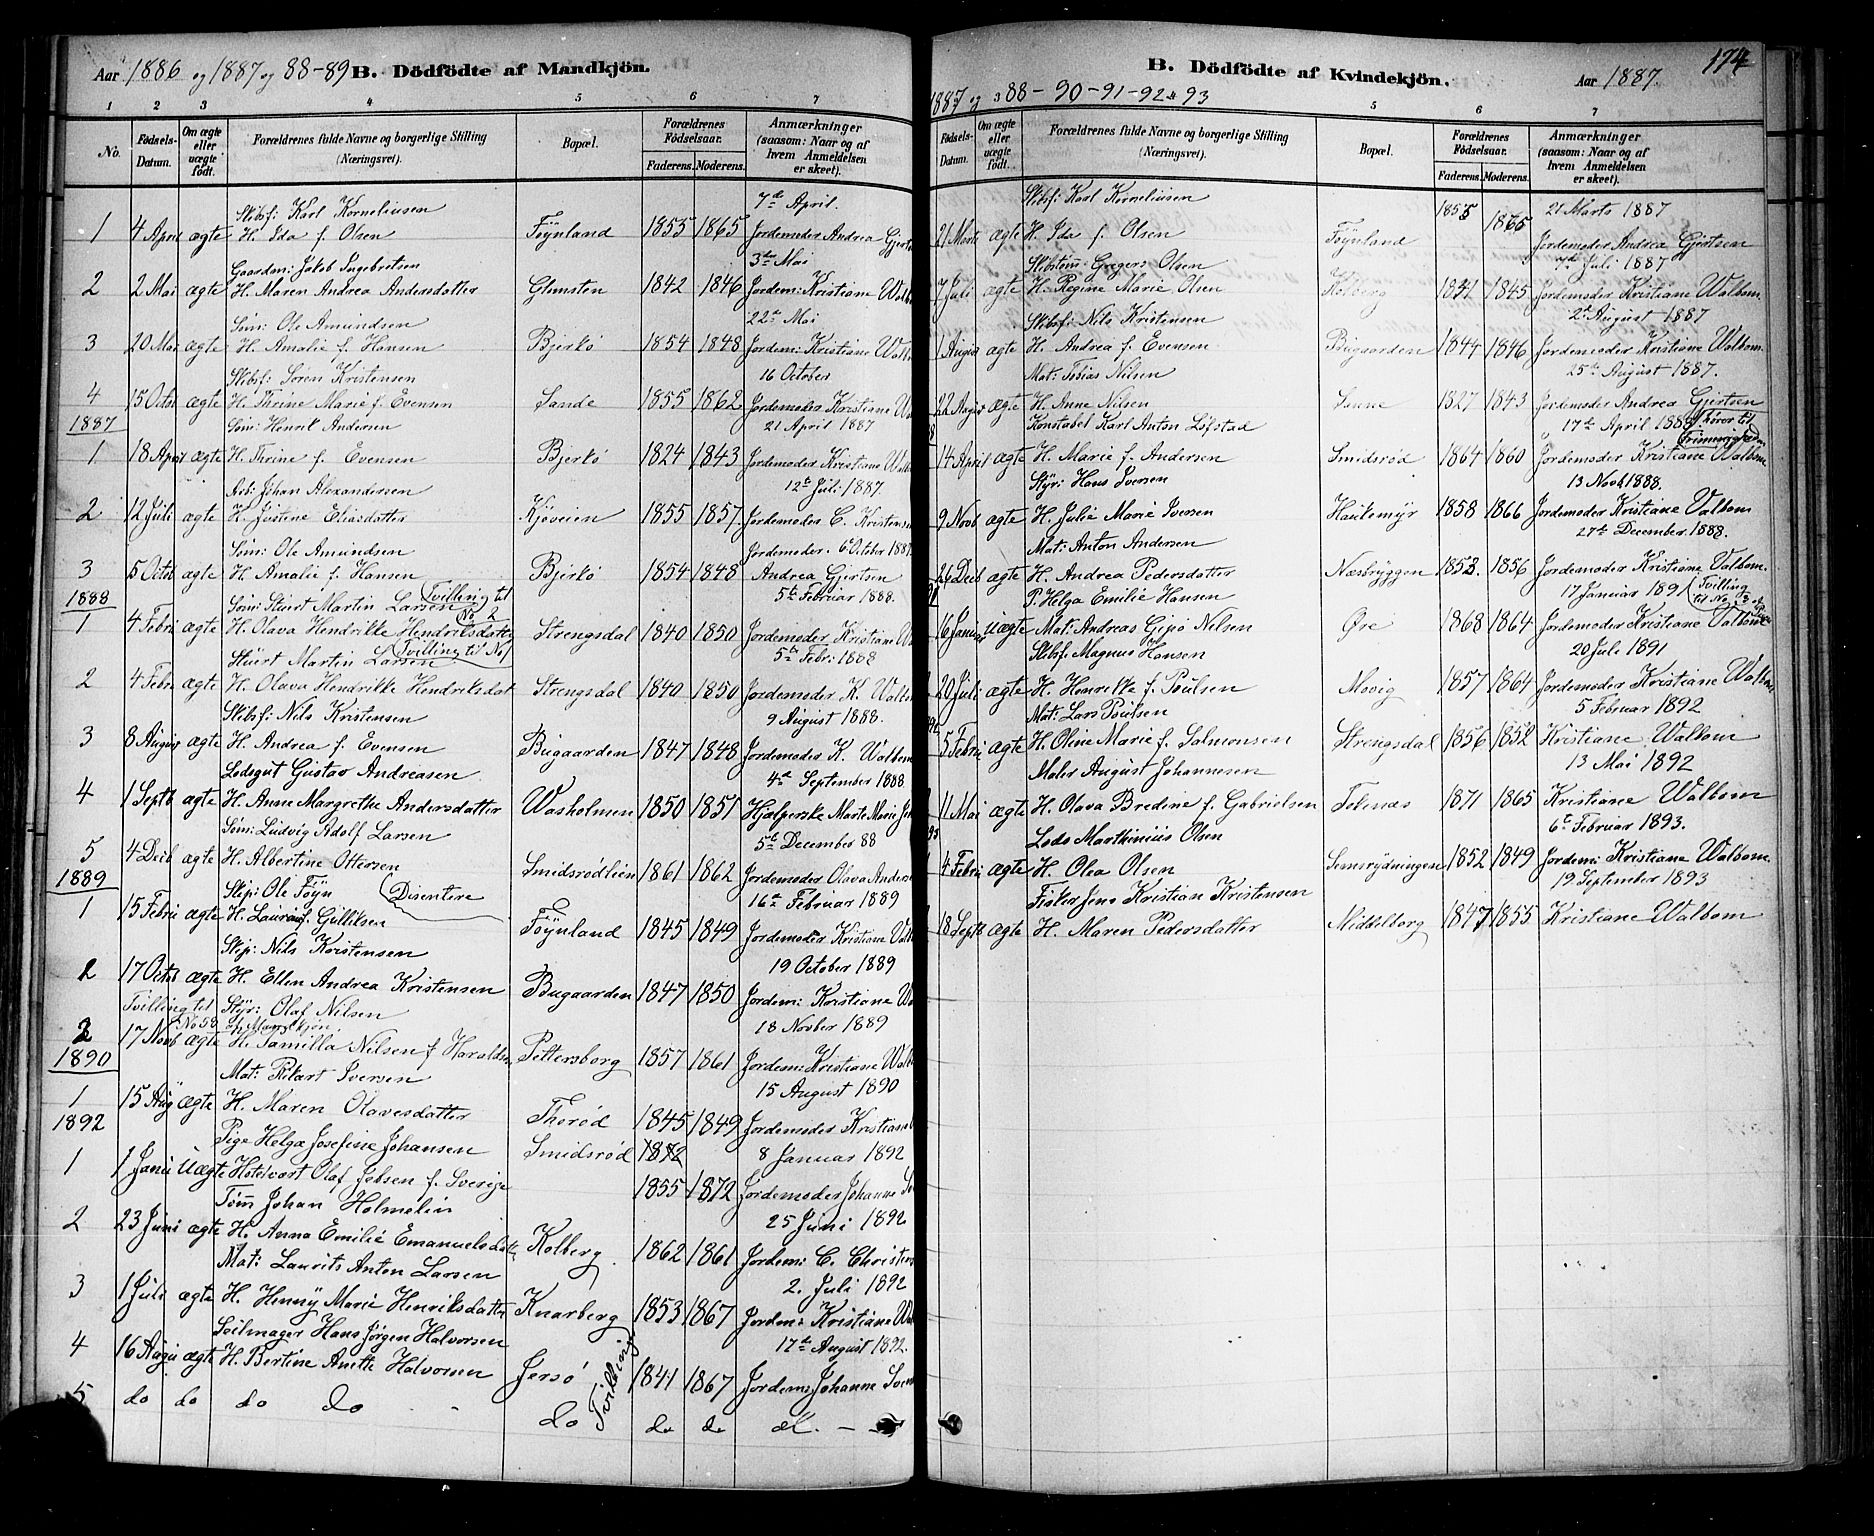 Aar 1886 og 1887 og 88-89 B. Dödfödte af Mandkjön.
1 2 3 4 5 6 7
No. Födsels-Datum. Om ægte eller uægte födt. Forældrenes fulde Navne og borgerlige Stilling (Næringsvei). Bopæl. Forældrenes Födselsaar. Faderens. Moderens. Anmærkninger (saasom: Naar og af hvem Anmeldelsen er skeet).
Skibsf: Karl Korneliusen 7de April.
1 4 April ægte H. Ida f. Olsen Föynland 1855 1865 Jordemoder Andrea Gjerts
Gaardm: Jakob Ingebretsen 3de Mai
2 2 Mai ægte H. Maren Andrea Andersdatter Glomsten 1842 1846 Jordem: Kristiane Walb
Söm: Ole Amundsen 22de Mai
3 20 Mai ægte H. Amalie f. Hansen Bjerkö 1854 1848 Jordem: Kristiane Walb
Skibsf: Sören Kristensen 16 October
4 15 Octob ægte H. Thrine Marie f. Evensen Sande 1855 1862 Jordemoder Kristiane W
1887 Söm: Henrik Andersen 21 April 1887
1 18 April ægte H. Thrine f. Evensen Bjerkö 1824 1843 Jordemoder Kristiane Walb
Arb: Johan Alexandersen 12te Juli 1887.
2 12 Juli ægte H. Justine Eliasdatter Kjöveien 1855 1857 Jordemoder C. Kristens
Söm: Ole Amundsen Jordemoder. 6 October 1887.
3 5 Octob ægte H. Amalie f. Hansen Bjerkö 1854 1848 Andrea Gjertsen
1888 Söm: Stuert Martin Larsen (Tvilling til No 2 5te Februar 1888.
1 4 Febru ægte H. Olava Hendrikke Hendriksdatter Strengsdal 1840 1850 Jordemoder Kristiane W
Stuert Martin Larsen (Tvilling til No 1 5te Febri 1888
2 4 Febr ægte H. Olava Hendrikke Hendriksdat Strengsdal 1840 1850 Jordemoder K. Walb
Skibsf: Nils Kristensen 9 August 1888.
3 8 August ægte H. Andrea f. Evensen Bugaarden 1847 1848 Jordemoder K. Walbom
Lodsgut Gustav Andreasen 4de September 1888
4 1 Septb ægte H. Anne Margrethe Andersdatter Washolmen 1850 1851 Hjælperske Marte Marie
Söm: Ludvig Adolf Larsen 5te December 88
5 4 Decb ægte H. Albertine Ottersen Smidsrödlien 1861 1862 Jordemoder Olava Anders
1889 Skip: Ole Föyn (Disentere 16de Februar 1889
1 15 Febru ægte H. Laura f. Gulliksen Föynland 1845 1849 Jordemoder Kristiane Walb
Skip: Nils Kristensen 19 October 1889
2 17 Octob ægte H. Ellen Andrea Kristensen Bugaarden 1847 1850 Jordem: Kristiane W
Tvilling til No 58 Mandkjön. Styr: Olaf Nilsen 18 Novber 1889
3 17 Novb ægte H. Tamilla Nilsen f Haralds Pettersborg 1857 1861 Jordem: Kristiane Walb
1890 Mat: Rikart Iversen 15 August 1890
1 15 Aug ægte H. Maren Olavesdatter Thoröd 1845 1849 Jordemoder Kristiane
1892 Pige Helga Josefine Johansen Smidsröd 1872 8 Januar 1892
1 1 Janu Uægte Hotelvært Olaf Jebsen f. Sverige 1855 1872 Jordemoder Johanne
Töm Johan Holmelin 25 Juni 1892
2 23 Juni ægte H. Anna Emilie Emanuelsdatt Kolberg 1862 1861 Jordem: C. Christens
Mat: Laurits Anton Larsen 2. Juli 1892
3 1 Juli ægte H. Henny Marie Henriksdatter Knarberg 1853 1867 Jordem: Kristiane Wal
Seilmager Hans Jörgen Halvorsen 17de August 1892.
4 16 Augu ægte H. Bertine Anette Halvorsen Jersö Tvilling 1841 1867 Jordem: Johanne
5 do do do do do do do
174
B. Dödfödte af Kvindekjön. Aar 1887.
1887 og 88 - 90 - 91 - 92 & 93
3 5 6 7
Födsels-Datum. Om ægte eller uægte födt. Forældrenes fulde Navne og borgerlige Stilling (Næringsvei). Bopæl. Forældrenes Födselsaar. Faderens. Moderens. Anmærkninger (saasom: Naar og af hvem Anmeldelsen er skeet).
Skibsf: Karl Korneliusen 1855 1865 21 Marts 1887
21 Marts ægte H. Ida f. Olsen Föynland Jordemoder Andrea Gjertsen
Skibstöm: Gregers Olsen 7de Juli 1887
7 Juli ægte H. Regine Marie Olsen Kolberg 1841 1845 Jordemoder Kristiane Walbom.
Skibsf: Nils Kristensen 2de August 1887
1 August ægte H. Andrea f. Evensen Bugaarden 1844 1846 Jordemoder Kristiane Walbom.
Mat: Tobias Nilsen 25de August 1887.
22 August ægte H. Anne Nilsen 1827 1843 Jordemoder Andrea Gjertsen
Konstabel Karl Anton Löfstad 17de April 1888 hörer til Frimenigheden
14 April ægte H. Marie f. Andersen Smidsröd 1864 1860 Jordemoder Kristiane Walbom
Styr: Hans Iversen 13 Novb 1888.
9 Novb ægte H. Julie Marie Iversen Haukemyr 1858 1866 Jordemoder Kristiane Valbom
Mat: Anton Andersen 27de December 1888.
Decb ægte H. Andrea Pedersdatter Næsbryggen 1853. 1856 Jordemoder Kristiane Walbom.
P. Helga Emilie Hansen 17 Januar 1891 (Tvilling til No 3
16 Januar Uægte Mat: Andreas Gipö Nilsen Øre 1868 1864 Jordemoder Kristiane Valbom
Skibsf: Magnus Hansen 20 Juli 1891
20 Juli ægte H. Henrikke f. Poulsen Movig 1857 1864 Jordemoder Kristiane Walbom
Mat: Lars Poulsen 5 Februar 1892
5 Febru ægte H. Oline Marie f. Salmonsen Strengsdal 1856 1852 Kristiane Walbom
Maler August Johannesen 13 Mai 1892
11 Mai ægte H. Olava Bredine f. Gabrielsen Tokenæs 1871 1865 Kristiane Walbom
Lods Marthinius Olsen 6te Februar 1893.
4 Febru ægte H. Olea Olsen Semsrydningen 1852 1849 Jordem: Kristiane Walbom.
Fisker Jens Kristian Kristensen 19 September 1893
18 Septb ægte H. Maren Pedersdatter Middelborg 1847 1855 Kristiane Walbom